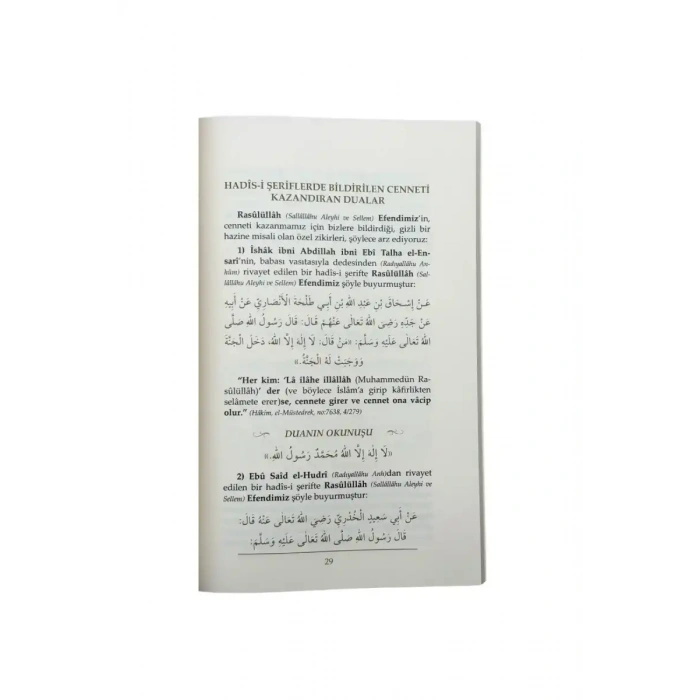 HADÎS-İ ŞERİFLERDE BİLDİRİLEN CENNETİ
KAZANDIRAN DUALAR
Rasûlüllâh (Sallâllâhu Aleyhi ve Sellem) Efendimiz'in,
cenneti kazanmamız için bizlere bildirdiği, gizli bir
hazine misali olan özel zikirleri, şöylece arz ediyoruz:
1) İshâk ibni Abdillah ibni Ebî Talha el-En-
sarî'nin, babası vasıtasıyla dedesinden (Radıyallâhu An-
hüm) rivayet edilen bir hadîs-i şerifte Rasûlüllâh (Sal-
lâllâhu Aleyhi ve Sellem) Efendimiz şöyle buyurmuştur:
عَنْ إِسْحَاقَ بْنِ عَبْدِ اللهِ بْنِ أَبِي طَلْحَةَ الْأَنْصَارِيِّ عَنْ أَبِيهِ
عَنْ جَدِّهِ رَضِيَ اللهُ تَعَالَى عَنْهُمْ قَالَ: قَالَ رَسُولُ اللهِ صَلَّى
اللهُ تَعَالَى عَلَيْهِ وَسَلَّمَ: «مَنْ قَالَ: لَا إِلٰهَ إِلَّا اللهُ، دَخَلَ الْجَنَّةَ
وَوَجَبَتْ لَهُ الْجَنَّةُ.»
"Her kim: 'Lâ ilâhe illâllâh (Muhammedün Ra-
sûlüllâh)' der (ve böylece İslâm'a girip kâfirlikten
selâmete erer)se, cennete girer ve cennet ona vâcip
olur." (Hâkim, el-Müstedrek, no:7638, 4/279)
DUANIN OKUNUŞU
«لَا إِلٰهَ إِلَّا اللهُ مُحَمَّدٌ رَسُولُ اللهِ.»
2) Ebû Saîd el-Hudrî (Radıyallâhu Anh)dan rivayet
edilen bir hadîs-i şerifte Rasûlüllâh (Sallâllâhu Aleyhi ve
Sellem) Efendimiz şöyle buyurmuştur:
عَنْ أَبِي سَعِيدٍ الْخُدْرِيِّ رَضِيَ اللهُ تَعَالَى عَنْهُ قَالَ:
قَالَ رَسُولُ اللهِ صَلَّى اللهُ تَعَالَى عَلَيْهِ وَسَلَّمَ:
29